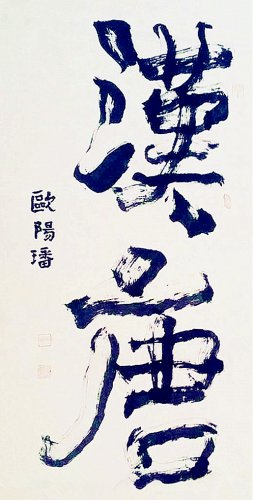 漢唐
歐陽璠